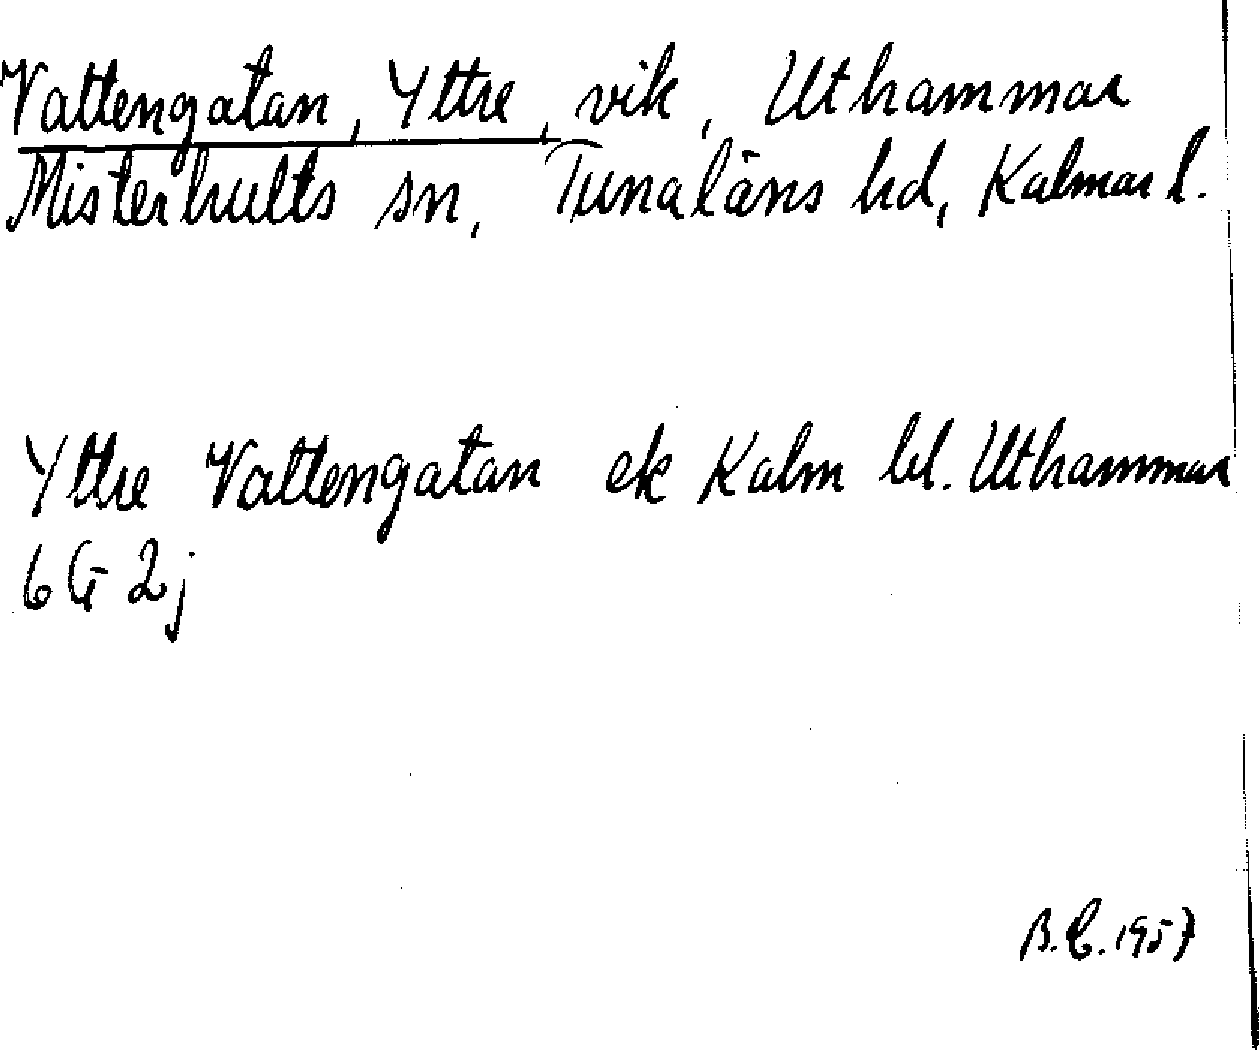 Vattengatan, Yttre, vik, Uthammar
Misterhults sn, Tunaläns hd, Kalmar l.
Yttre Vattengatan ek Kalm bl. Uthammar
6G 2j
B.C. 1957